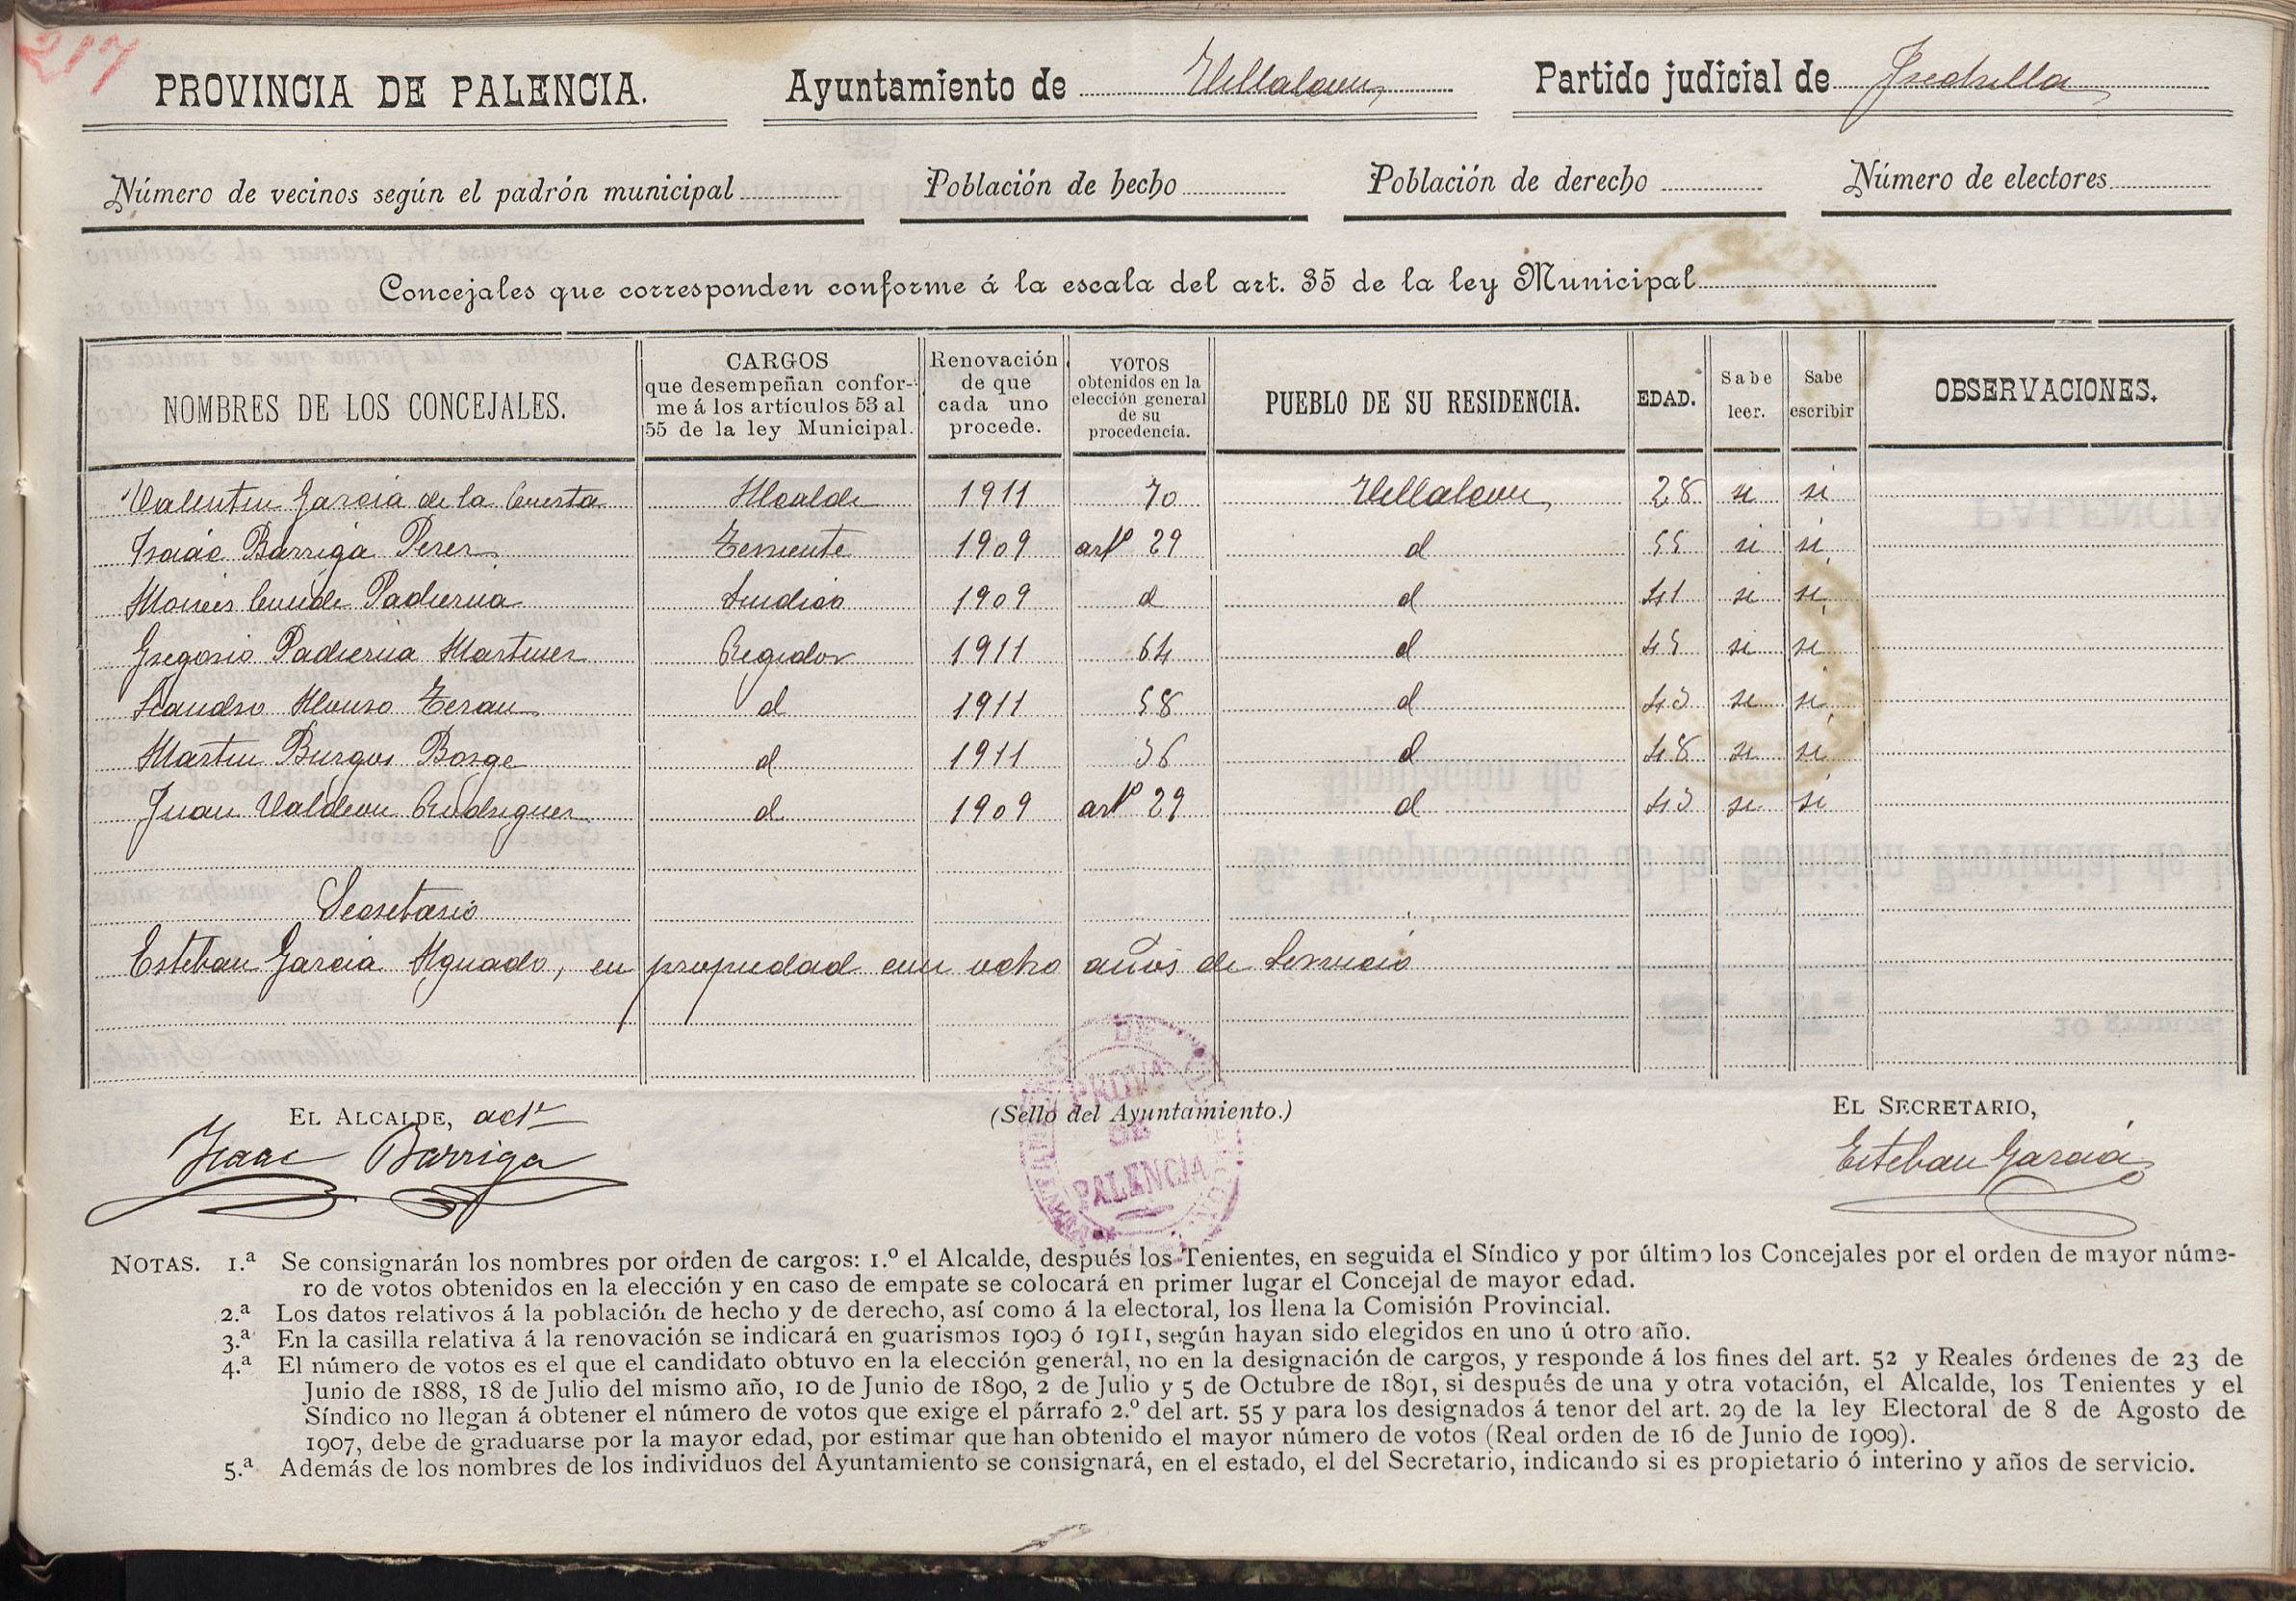 217
PROVINCIA DE PALENCIA. Ayuntamiento de Villalcon Partido judicial de Frechilla
Número de vecinos según el padrón municipal Población de hecho Población de derecho Número de electores
Concejales que corresponden conforme á la escala del art. 35 de la ley Municipal
NOMBRES DE LOS CONCEJALES. CARGOS que desempeñan conforme á los artículos 53 al 55 de la ley Municipal. Renovación de que cada uno procede. VOTOS obtenidos en la elección general de su procedencia. PUEBLO DE SU RESIDENCIA. EDAD. Sabe leer. Sabe escribir OBSERVACIONES.
Valentin Garcia de la Cuesta Alcalde 1911 70 Villalcon 28 si si
Isaác Barriga Perez Teniente 1909 artº 29 d 55 si si
Moises Conde Padierna Sindico 1909 d d 41 si si
Gregorio Padierna Martinez Regidor 1911 64 d 45 si si
Leandro Alonso Teran d 1911 58 d 43 si si
Martin Burgos Borge d 1911 36 d 48 si si
Juan Valdeon Rodriguez d 1909 artº 29 d 43 si si
Secretario
Esteban Garcia Aguado, en propiedad con ocho años de Servicio
EL ALCALDE, actl (Sello del Ayuntamiento.) EL SECRETARIO,
Isaac Barriga Esteban Garcia
DE
PROVª
DE
PALENCIA
NOTAS. 1.ª Se consignarán los nombres por orden de cargos: 1.º el Alcalde, después los Tenientes, en seguida el Síndico y por último los Concejales por el orden de mayor núme-
ro de votos obtenidos en la elección y en caso de empate se colocará en primer lugar el Concejal de mayor edad.
2.ª Los datos relativos á la población de hecho y de derecho, así como á la electoral, los llena la Comisión Provincial.
3.ª En la casilla relativa á la renovación se indicará en guarismos 1909 ó 1911, según hayan sido elegidos en uno ú otro año.
4.ª El número de votos es el que el candidato obtuvo en la elección general, no en la designación de cargos, y responde á los fines del art. 52 y Reales órdenes de 23 de
Junio de 1888, 18 de Julio del mismo año, 10 de Junio de 1890, 2 de Julio y 5 de Octubre de 1891, si después de una y otra votación, el Alcalde, los Tenientes y el
Síndico no llegan á obtener el número de votos que exige el párrafo 2.º del art. 55 y para los designados á tenor del art. 29 de la ley Electoral de 8 de Agosto de
1907, debe de graduarse por la mayor edad, por estimar que han obtenido el mayor número de votos (Real orden de 16 de Junio de 1909).
5.ª Además de los nombres de los individuos del Ayuntamiento se consignará, en el estado, el del Secretario, indicando si es propietario ó interino y años de servicio.